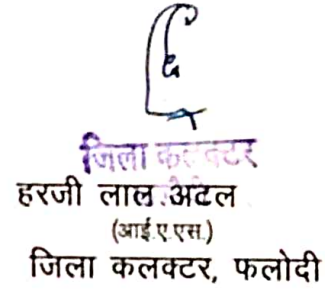 जिला कलक्टर
हरजी लाल अटल
(आई.ए.एस.)
जिला कलक्टर, फलोदी